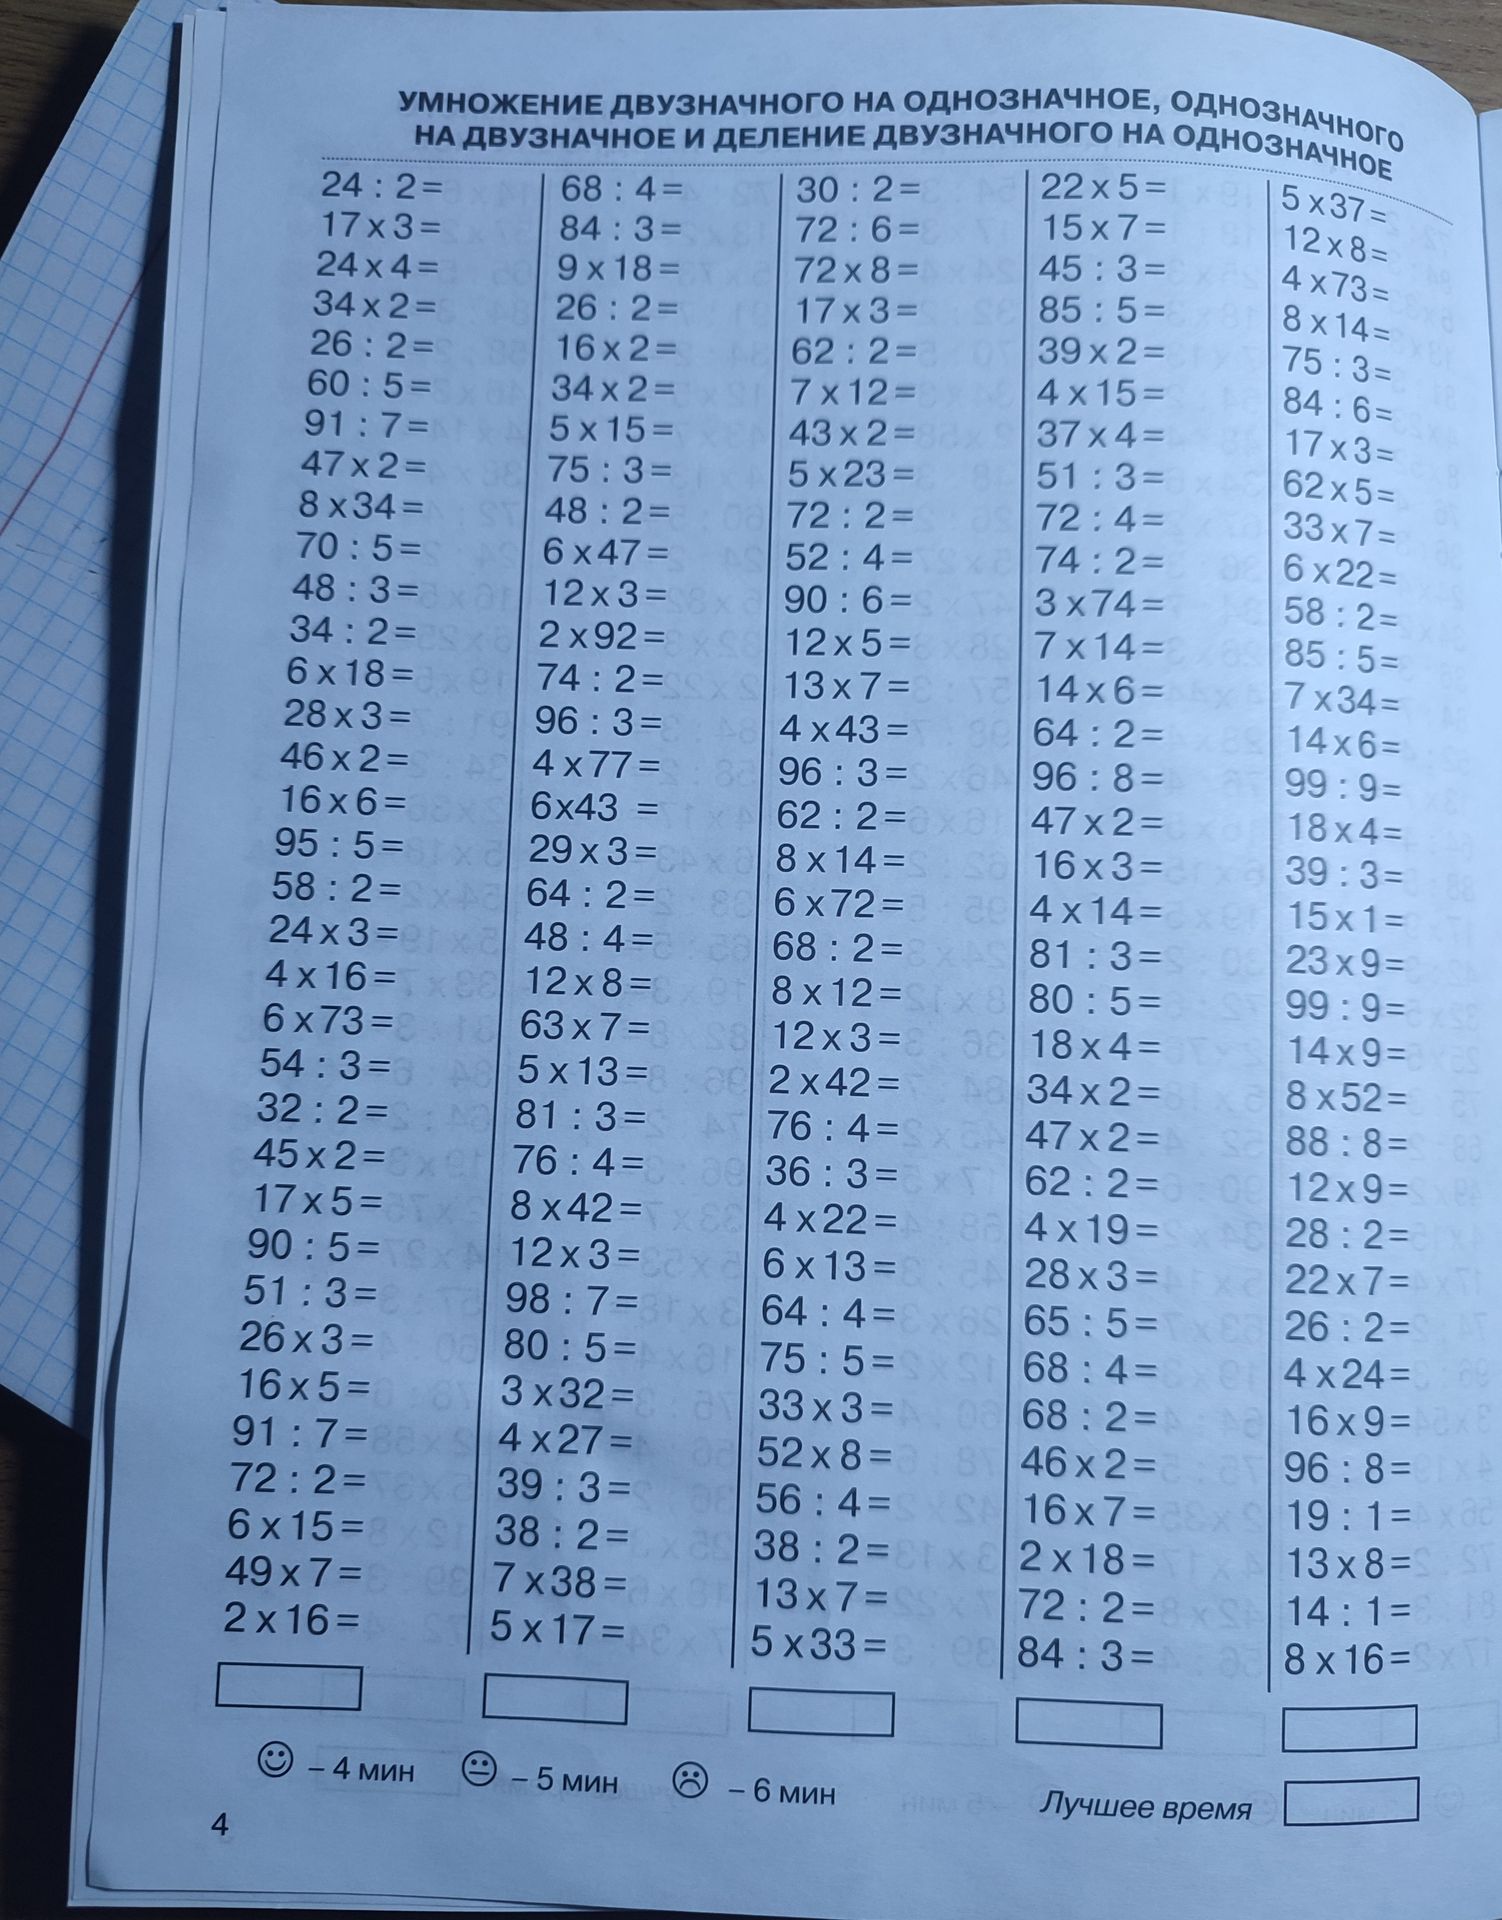 УМНОЖЕНИЕ ДВУЗНАЧНОГО НА ОДНОЗНАЧНОЕ, ОДНОЗНАЧНОГО
НА ДВУЗНАЧНОЕ И ДЕЛЕНИЕ ДВУЗНАЧНОГО НА ОДНОЗНАЧНОЕ
24 : 2=
17 x 3=
24 x 4=
34 x 2=
26 : 2=
60 : 5=
91 : 7=
47 x 2=
8 x 34=
70 : 5=
48 : 3=
34 : 2=
6 x 18=
28 x 3=
46 x 2=
16 x 6=
95 : 5=
58 : 2=
24 x 3=
4 x 16=
6 x 73=
54 : 3=
32 : 2=
45 x 2=
17 x 5=
90 : 5=
51 : 3=
26 x 3=
16 x 5=
91 : 7=
72 : 2=
6 x 15=
49 x 7=
2 x 16=
68 : 4=
84 : 3=
9 x 18=
26 : 2=
16 x 2=
34 x 2=
5 x 15=
75 : 3=
48 : 2=
6 x 47=
12 x 3=
2 x 92=
74 : 2=
96 : 3=
4 x 77=
6x43 =
29 x 3=
64 : 2=
48 : 4=
12 x 8=
63 x 7=
5 x 13=
81 : 3=
76 : 4=
8 x 42=
12 x 3=
98 : 7=
80 : 5=
3 x 32=
4 x 27=
39 : 3=
38 : 2=
7 x 38=
5 x 17=
30 : 2=
72 : 6=
72 x 8=
17 x 3=
62 : 2=
7 x 12=
43 x 2=
5 x 23=
72 : 2=
52 : 4=
90 : 6=
12 x 5=
13 x 7=
4 x 43=
96 : 3=
62 : 2=
8 x 14=
6 x 72=
68 : 2=
8 x 12=
12 x 3=
2 x 42=
76 : 4=
36 : 3=
4 x 22=
6 x 13=
64 : 4=
75 : 5=
33 x 3=
52 x 8=
56 : 4=
38 : 2=
13 x 7=
5 x 33=
22 x 5=
15 x 7=
45 : 3=
85 : 5=
39 x 2=
4 x 15=
37 x 4=
51 : 3=
72 : 4=
74 : 2=
3 x 74=
7 x 14=
14 x 6=
64 : 2=
96 : 8=
47 x 2=
16 x 3=
4 x 14=
81 : 3=
80 : 5=
18 x 4=
34 x 2=
47 x 2=
62 : 2=
4 x 19=
28 x 3=
65 : 5=
68 : 4=
68 : 2=
46 x 2=
16 x 7=
2 x 18=
72 : 2=
84 : 3=
5 x 37=
12 x 8=
4 x 73=
8 x 14=
75 : 3=
84 : 6=
17 x 3=
62 x 5=
33 x 7=
6 x 22=
58 : 2=
85 : 5=
7 x 34=
14 x 6=
99 : 9=
18 x 4=
39 : 3=
15 x 1=
23 x 9=
99 : 9=
14 x 9=
8 x 52=
88 : 8=
12 x 9=
28 : 2=
22 x 7=
26 : 2=
4 x 24=
16 x 9=
96 : 8=
19 : 1=
13 x 8=
14 : 1=
8 x 16=
– 4 мин – 5 мин – 6 мин
Лучшее время
4